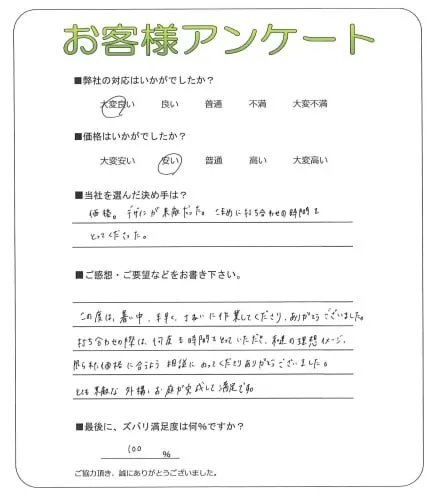 お客様アンケート
■弊社の対応はいかがでしたか？
大変良い 良い 普通 不満 大変不満
■価格はいかがでしたか？
大変安い 安い 普通 高い 大変高い
■当社を選んだ決め手は？
価格。デザインが素敵だった。こまめに打ち合わせの時間を
とってくださった。
■ご感想・ご要望などをお書き下さい。
この度は、暑い中、手早く、きれいに作業してくださり、ありがとうございました。
打ち合わせの際は、何度も時間をとっていただき、私達の理想イメージ、
限られた価格に合うよう相談にのってくださりありがとうございました。
とても素敵な外構、お庭が完成して満足です。
■最後に、ズバリ満足度は何%ですか？
100 %
ご協力頂き、誠にありがとうございました。